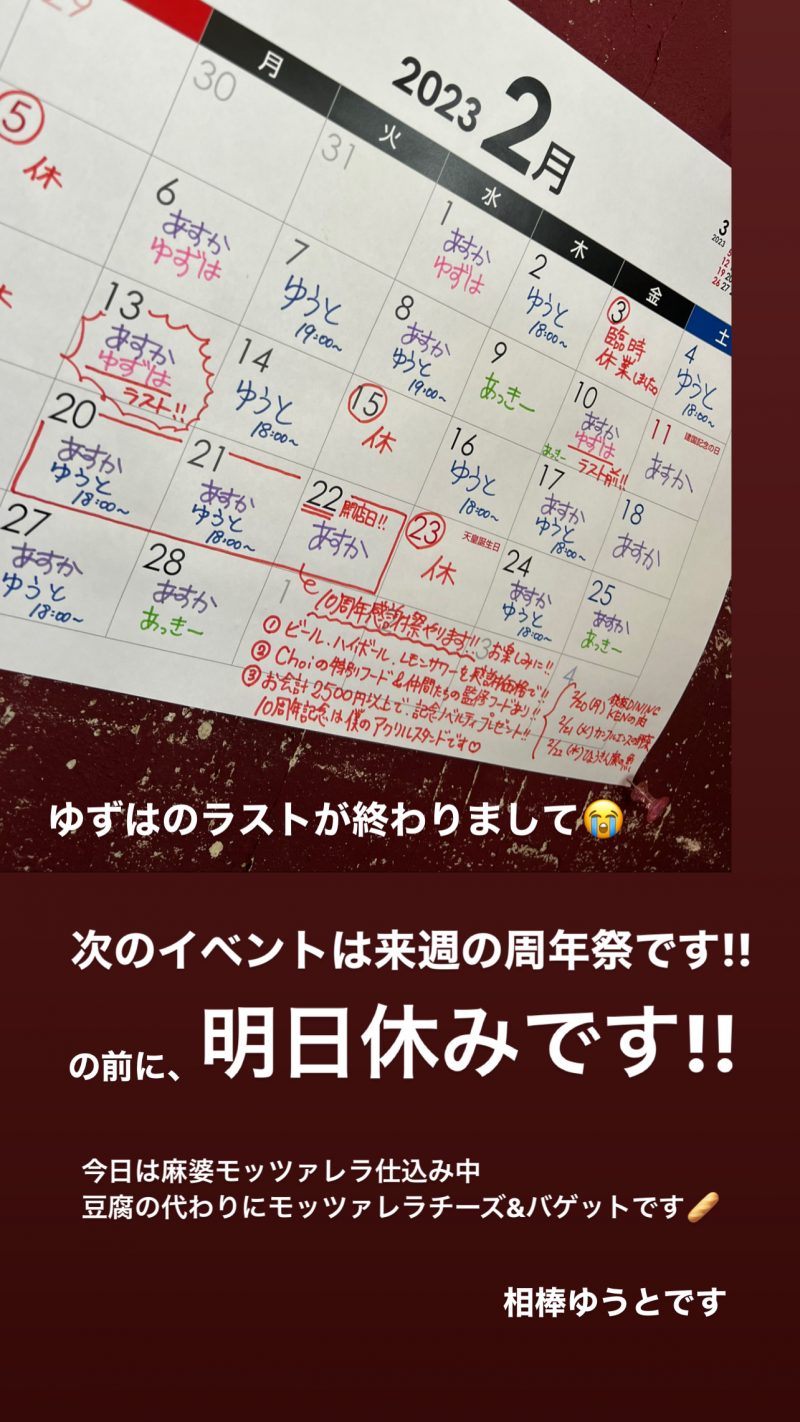 2023 2月
月 火 水 木 金 土
29
30
31
1
あすか
ゆずは
2
ゆうと
18:00~
3
臨時
休業しました
4
ゆうと
18:00~
5
休
6
あすか
ゆずは
7
ゆうと
19:00~
8
あすか
ゆうと
19:00~
9
あっきー
10
あすか
ゆずは
あっきー
ラスト前!!
11 建国記念の日
あすか
13
あすか
ゆずは
ラスト!!
14
ゆうと
18:00~
15
休
16
ゆうと
18:00~
17
あすか
ゆうと
18:00~
18
あすか
20
あすか
ゆうと
18:00~
21
あすか
ゆうと
18:00~
22 開店日!!
あすか
23 天皇誕生日
休
24
あすか
ゆうと
18:00~
25
あすか
あっきー
27
あすか
ゆうと
18:00~
28
あすか
あっきー
1
3
4
10周年感謝祭やります!! お楽しみに!!
① ビール、ハイボール、レモンサワーを感謝価格で!!
② Choiの特別フード&仲間たちの監修フードあり!!
③ お会計2500円以上で、記念ノベルティプレゼント!!
10周年記念は僕のアクリルスタンドです♡
2/20(月) 鉄板DINING
KENの肉
2/21(火)
2/22(水)
3
2023
ゆずはのラストが終わりまして😭
次のイベントは来週の周年祭です!!
の前に、明日休みです!!
今日は麻婆モッツァレラ仕込み中
豆腐の代わりにモッツァレラチーズ&バゲットです🥖
相棒ゆうとです